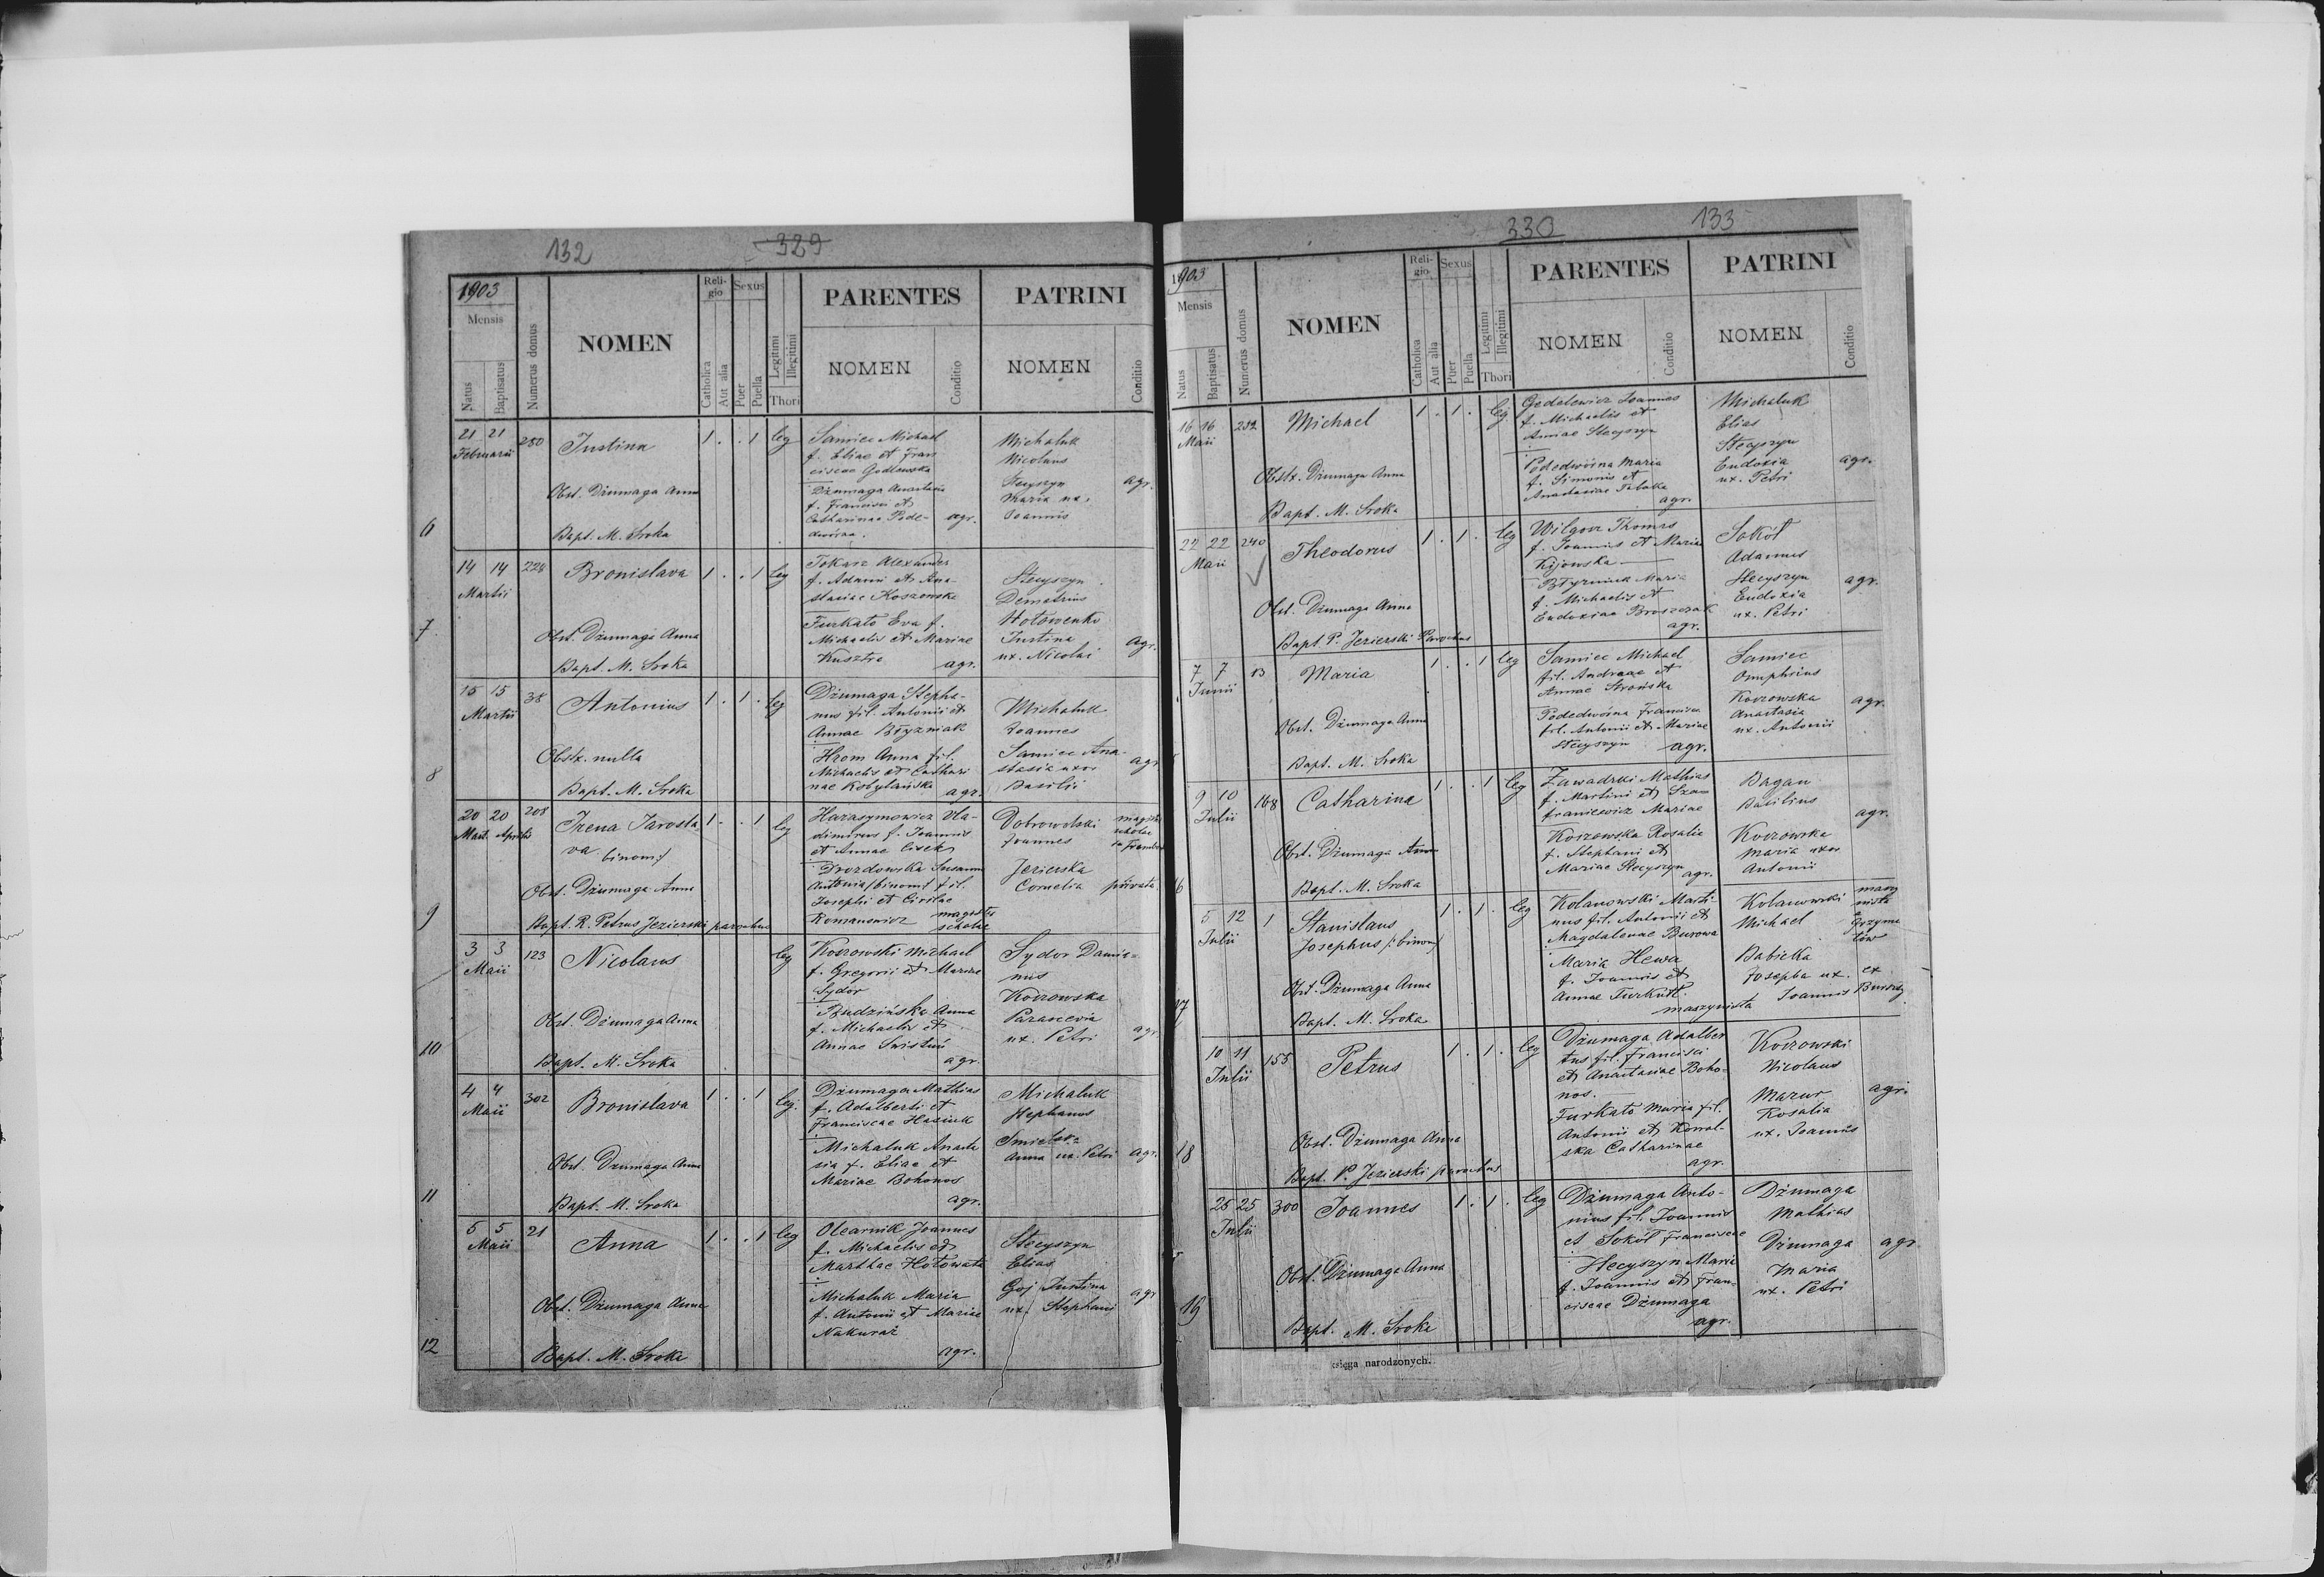 132 329
1903
Mensis
Natus
Baptisatus
Numerus domus
NOMEN
Reli-
gio
Catholica
Aut alia
Sexus
Puer
Puella
Legitimi
Illegitimi
Thori
PARENTES
NOMEN
Conditio
PATRINI
NOMEN
Conditio
6
21 21
Februarii
280
Justina
Obst. Dżumaga Anna
Bapt. M. Sroka
1 . . 1 leg
Samiec Michael
f. Eliae et Fran
ciscae Godlewska
Dżumaga Anastasia
f. Francisci et
Catharinae Pode-
dwórna.
agr.
Michaluk
Nicolaus
Stecyszyn
Maria ux.
Joannis
agr.
7
14 14
Martii
224
Bronislava
Obst. Dżumaga Anna
Bapt. M. Sroka
1 . . 1 leg
Tokarz Alexander
f. Adami et Ana-
stasiae Koszowska
Furkało Eva f.
Michaelis et Mariae
Kusztra
agr.
Stecyszyn
Demetrius
Hołowenko
Justina
ux. Nicolai
agr.
8
15 15
Martii
38
Antonius
Obstx. nulla
Bapt. M. Sroka
1 . 1 . leg
Dżumaga Stepha-
nus fil. Antonii et
Annae Błyzniak
Hrom Anna fil.
Michaelis et Cathari
nae Kobylańska
agr.
Michaluk
Joannes
Samiec Ana-
stasia uxor
Basilii
agr
9
20 20
Mart. Aprilis
208
Irena Jarosła
va binom/
Obst. Dżumaga Anna
Bapt. R. Petrus Jezierski parochus
1 . . 1 leg
Harasymowicz Vla-
dimirus f. Joannis
et Annae Cizek
Drozdowska Susanna
Antonia /binom/ fil.
Josephi et Cirilae
Romanowicz
magister
scholae
Dobrowolski
Joannes
magister
scholae
Jezierska
Cornelia
privata
10
3 3
Maii
123
Nicolaus
Obst. Dżumaga Anna
Bapt. M. Sroka
leg
Kozowski Michael
f. Gregorii et Mariae
Sydor
Budzińska Anna
f. Michaelis et
Annae Swistuń
agr.
Sydor Damia-
nus
Kozowska
Parascevia
ux. Petri
agr
11
4 4
Maii
302
Bronislava
Obst. Dżumaga Anna
Bapt. M. Sroka
1 . . 1 leg.
Dżumaga Mathias
f. Adalberti et
Franciscae Hasiuk
Michaluk Anasta
sia f. Eliae et
Mariae Bohonos
agr.
Michaluk
Stephanus
Anna ux. Petri
agr.
12
5 5
Maii
21
Anna
Obst. Dżumaga Anna
Bapt. M. Sroka
1 . . 1 leg
Olearnik Joannes
f. Michaelis et
Marthae Hołowata
Michaluk Maria
f. Antonii et Mariae
Nakuraż
agr.
Stecyszyn
Elias
Goj Justina
ux. Stephani
agr
330 133
1903
Mensis
Natus
Baptisatus
Numerus domus
NOMEN
Reli-
gio
Catholica
Aut alia
Sexus
Puer
Puella
Legitimi
Illegitimi
Thori
PARENTES
NOMEN
Conditio
PATRINI
NOMEN
Conditio
16 16
Maii
232
Michael
Obstx. Dżumaga Anna
Bapt. M. Sroka
1 . 1 . leg
Gedelewicz Joannes
f. Michaelis et
Annae Stecyszyn
Pododwórna Maria
f. Simonis et
Anastasiae Tabaka
agr.
Michaluk
Elias
Stecyszyn
Eudoxia
ux. Petri
agr.
22 22
Maii
240
Theodorus
Obst. Dżumaga Anna
Bapt. P. Jezierski Parochus
1 . 1 . leg
Wilgosz Thomas
f. Joannis et Maria
Kijowska
Błyzniuk Maria
f. Michaelis et
Eudoxiae Broszczak
agr.
Sokół
Adamus
Stecyszyn
Eudoxia
ux. Petri
agr.
7 7
Junii
13
Maria
Obst. Dżumaga Anna
Bapt. M. Sroka
1 . . 1 leg
Samiec Michael
fil. Andreae et
Annae Strońska
Pododwórna Francisca
fil. Antonii et Mariae
Stecyszyn
agr.
Samiec
Onuphrius
Kozowska
Anastasia
ux. Antonii
agr.
16
9 10
Julii
168
Catharina
Obst. Dżumaga Anna
Bapt. M. Sroka
1 . . 1 leg
Zawadzki Mathias
f. Martini et Sza-
franiewicz Mariae
Kozowska Rosalia
f. Stephani et
Mariae Stecyszyn
agr.
Bagan
Basilius
Kozowska
Maria uxor
Antonii
agr.
17
5 12
Julii
1
Stanislaus
Josephus /:binom/
Obst. Dżumaga Anna
Bapt. M. Sroka
1 . 1 . leg
Kolanowski Marti-
nus fil. Antonii et
Magdalenae Burowa
Maria Hewa
f. Joannis et
Annae Turkuł.
maszynista
Kolanowski
Michael
maszy
nista
Grzyma
łów
Babicka
Josepha ux.
Joannis
ex
18
10 11
Julii
155
Petrus
Obst. Dżumaga Anna
Bapt. P. Jezierski parochus
1 . 1 . leg
Dżumaga Adalber
tus fil. Francisci
et Anastasiae Boho-
nos.
Furkało Maria fil.
Antonii et Kowal-
ska Catharinae
agr.
Kozowski
Nicolaus
Mazur
Rosalia
ux. Joannis
agr.
19
25 25
Julii
300
Joannes
Obst. Dżumaga Anna
Bapt. M. Sroka
1 . 1 . leg
Dżumaga Anto-
nius fil. Joannis
et Sokół Franciscae
Hecyszyn Maria
f. Joannis et Fran-
ciscae Dżumaga
agr.
Dżumaga
Mathias
Dżumaga
Maria
ux. Petri
agr
księga narodzonych.